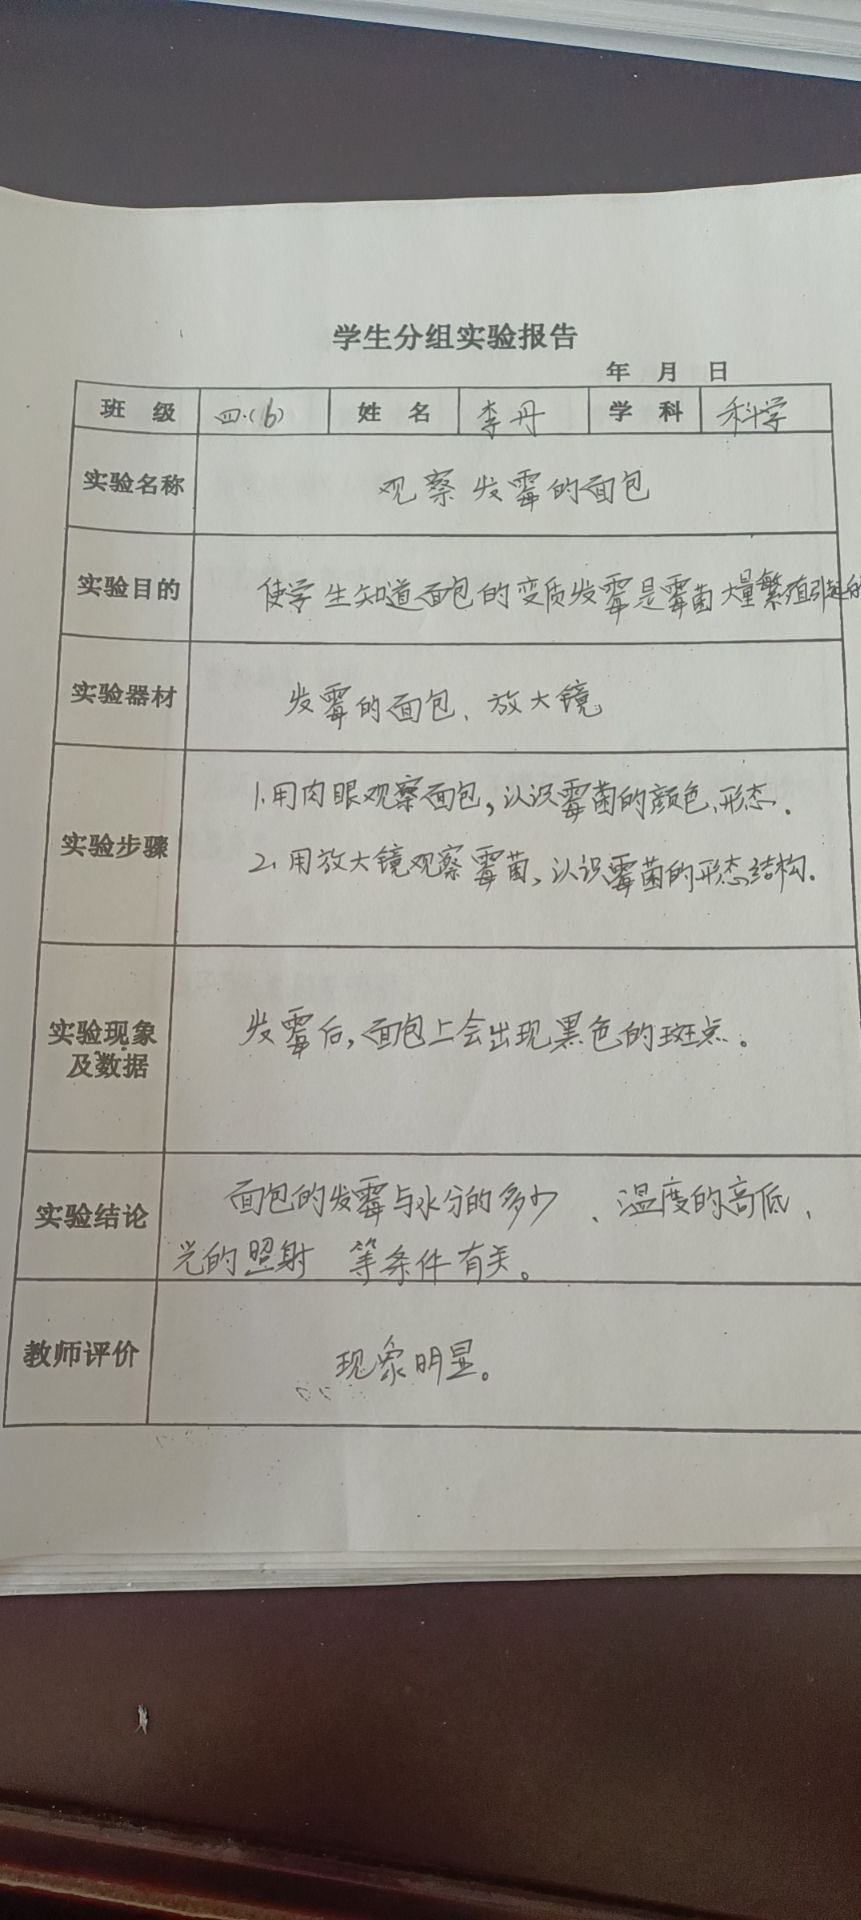 学生分组实验报告
年 月 日
班 级 四.(6) 姓 名 李丹 学 科 科学
实验名称 观察发霉的面包
实验目的 使学生知道面包的变质发霉是霉菌大量繁殖引起的
实验器材 发霉的面包、放大镜
1.用肉眼观察面包,认识霉菌的颜色、形态.
实验步骤
2、用放大镜观察霉菌,认识霉菌的形态结构.
实验现象 发霉后,面包上会出现黑色的斑点。
及数据
面包的发霉与水分的多少、温度的高低、
实验结论
光的照射 等条件有关。
教师评价 现象明显。